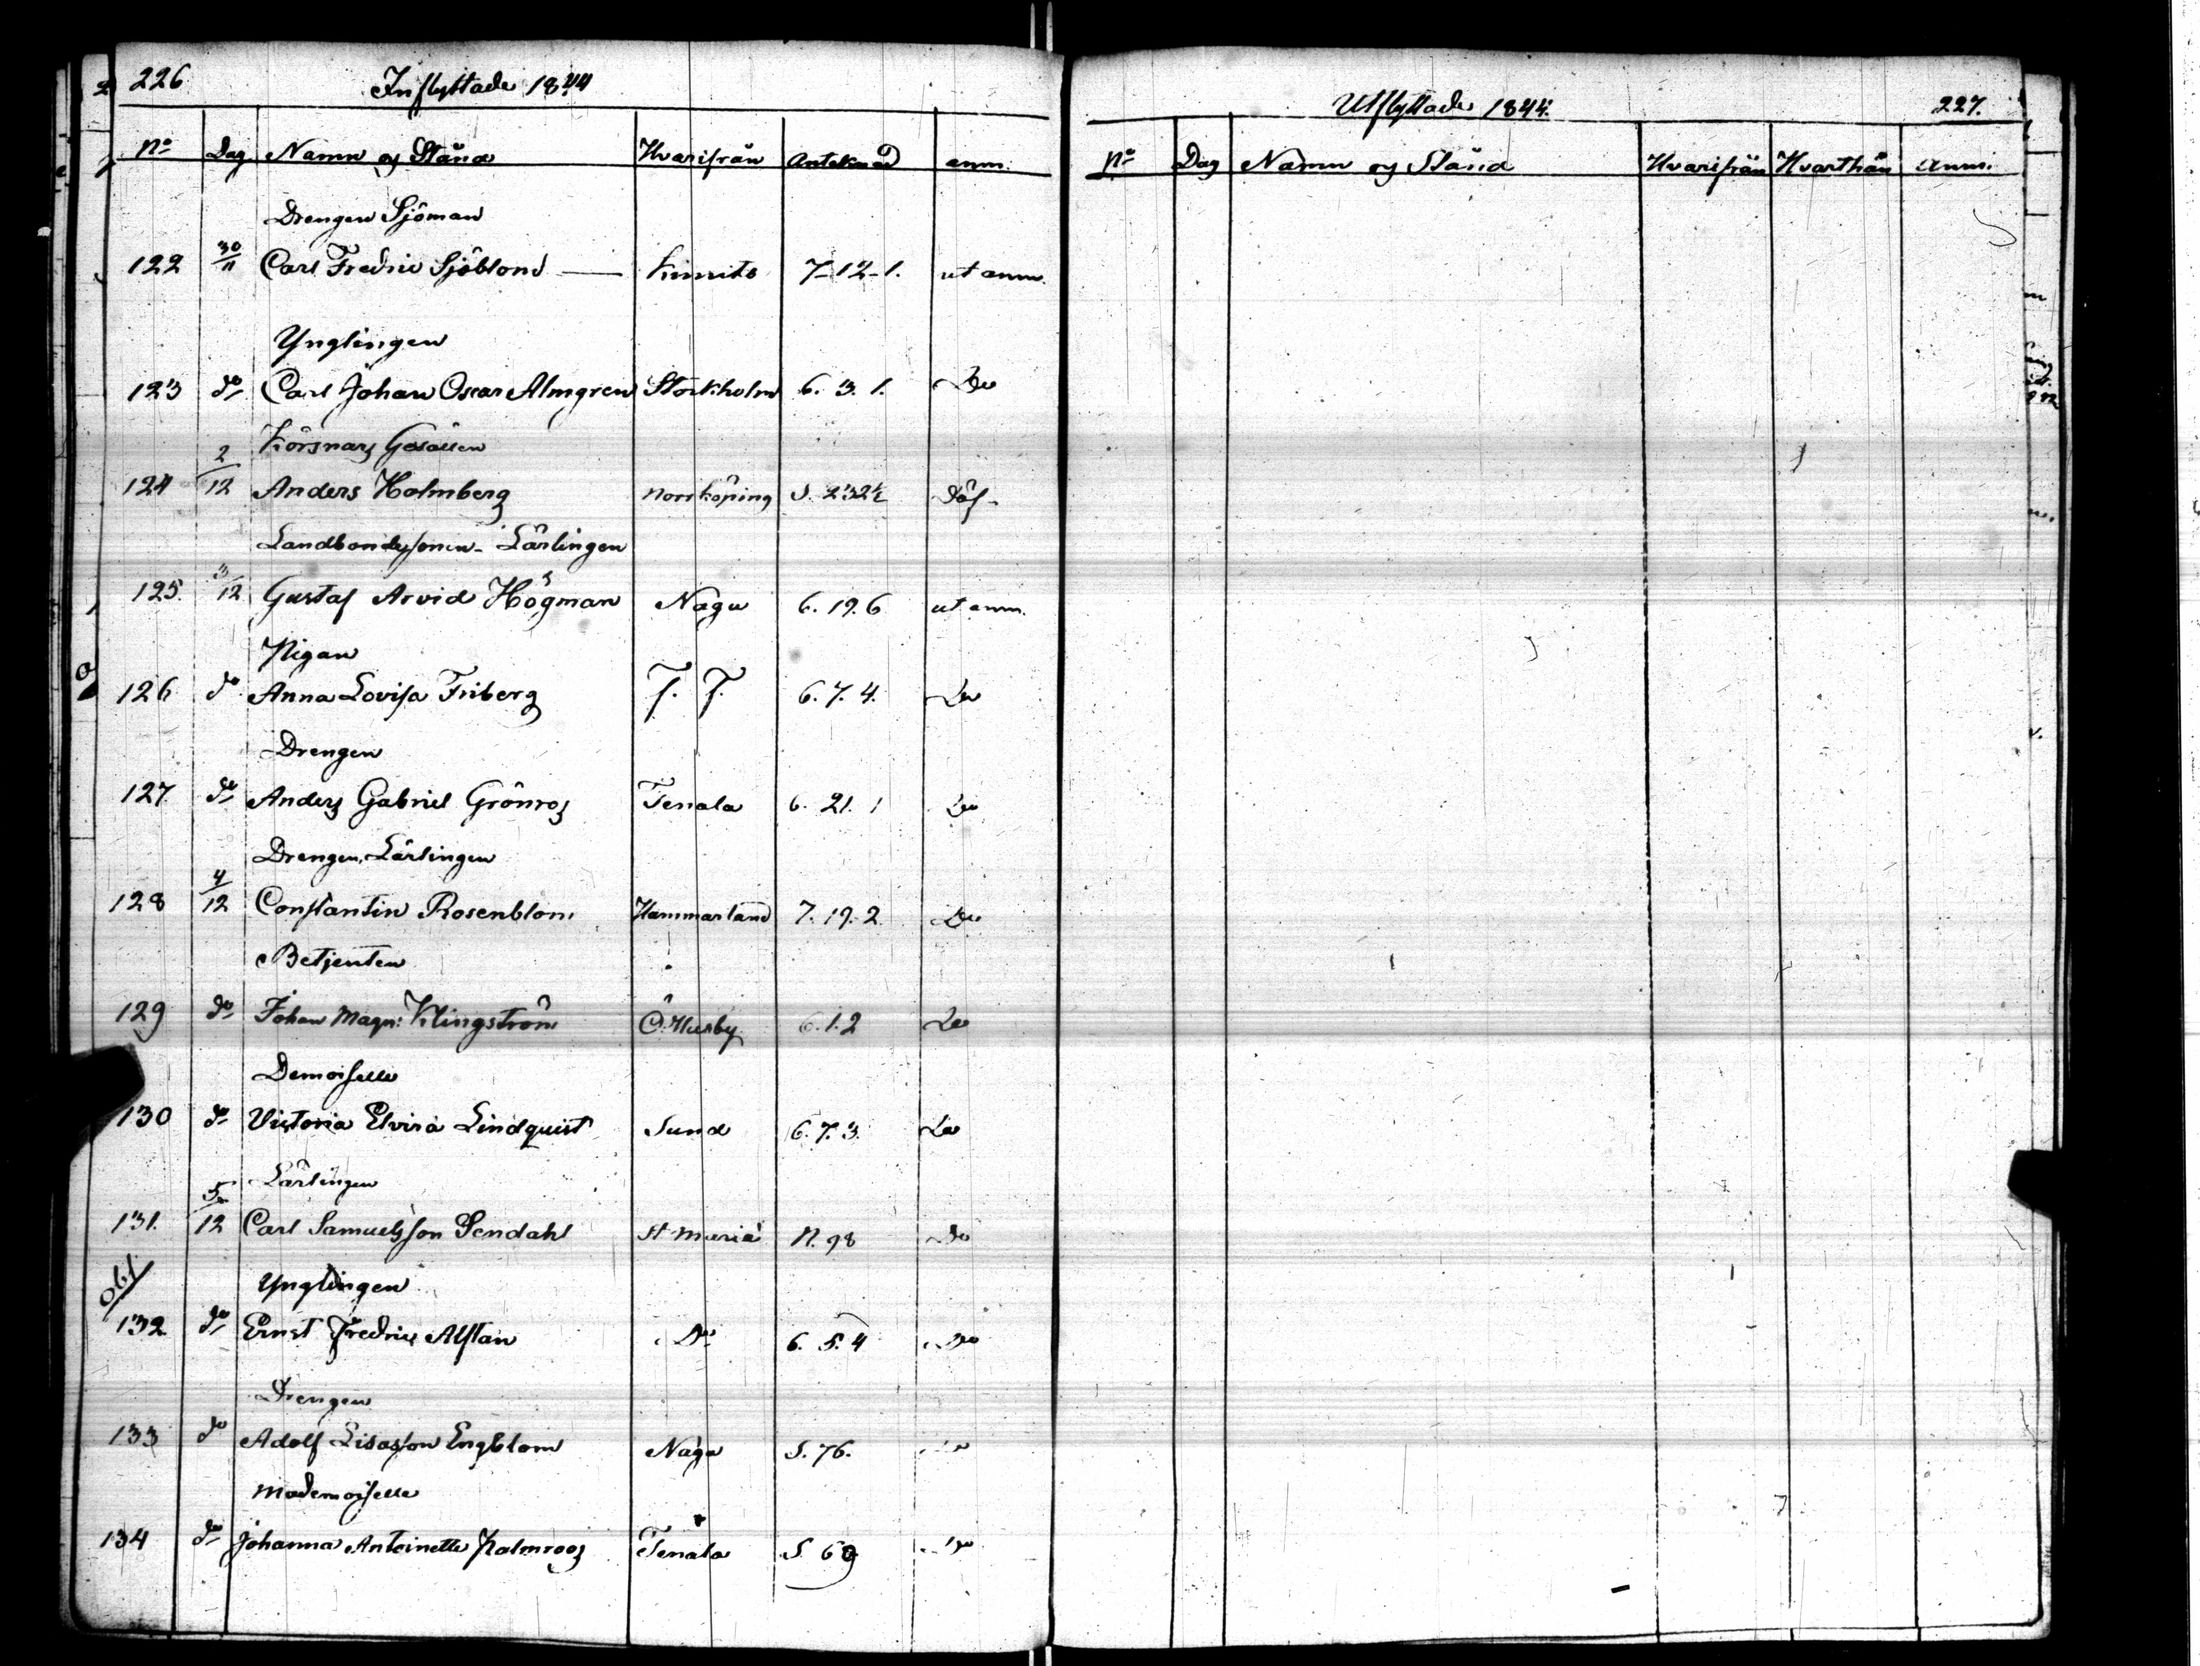 226 Inflyttade 1844
No Dag Namn og Stånd Hvarifrån Anteknad anm.
Drengen Sjöman
122 30/11 Carl Fredric Sjöblom — Kimito 7-12-1. ut anm.
Ynglingen
123 do Carl Johan Oscar Almgren Stockholm 6. 3. 1. Do
Körsnars Gesällen
124 2/12 Anders Holmberg Norrköping S. 232½
Landbondesonen - Lärlingen
125. 3/12 Gustaf Arvid Högman Nagu 6. 19. 6 ut anm.
Pigan
126 do Anna Lovisa Friberg T. T. 6. 7. 4. Do
Drengen
127. do Anders Gabriel Grönros Tenala 6. 21. 1 Do
Drengen, Lärlingen
128 4/12 Constantin Rosenblom Hammarland 7. 19. 2. Do
Betjenten
129 do Johan Magn: Klingström Ö. Husby 6. 1. 2 Do
Demoiselle
130 do Victoria Elvira Lindquist Sund 6. 7. 3. Do
Lärlingen
131. 5/12 Carl Samuelsson Sendahl St Mariæ N. 98 Do
obs
Ynglingen
132 do Ernst Fredric Alftan Do 6. 5. 4 Do
Drengen
133 do Adolf Lisasson Engblom Nagu S. 76. Do
Mademoiselle
134 do Johanna Antoinette Palmroos Tenala S. 69 Do
Utflyttade 1844. 227.
No Dag Namn og Stånd Hvarifrån Hvarthän Anm.